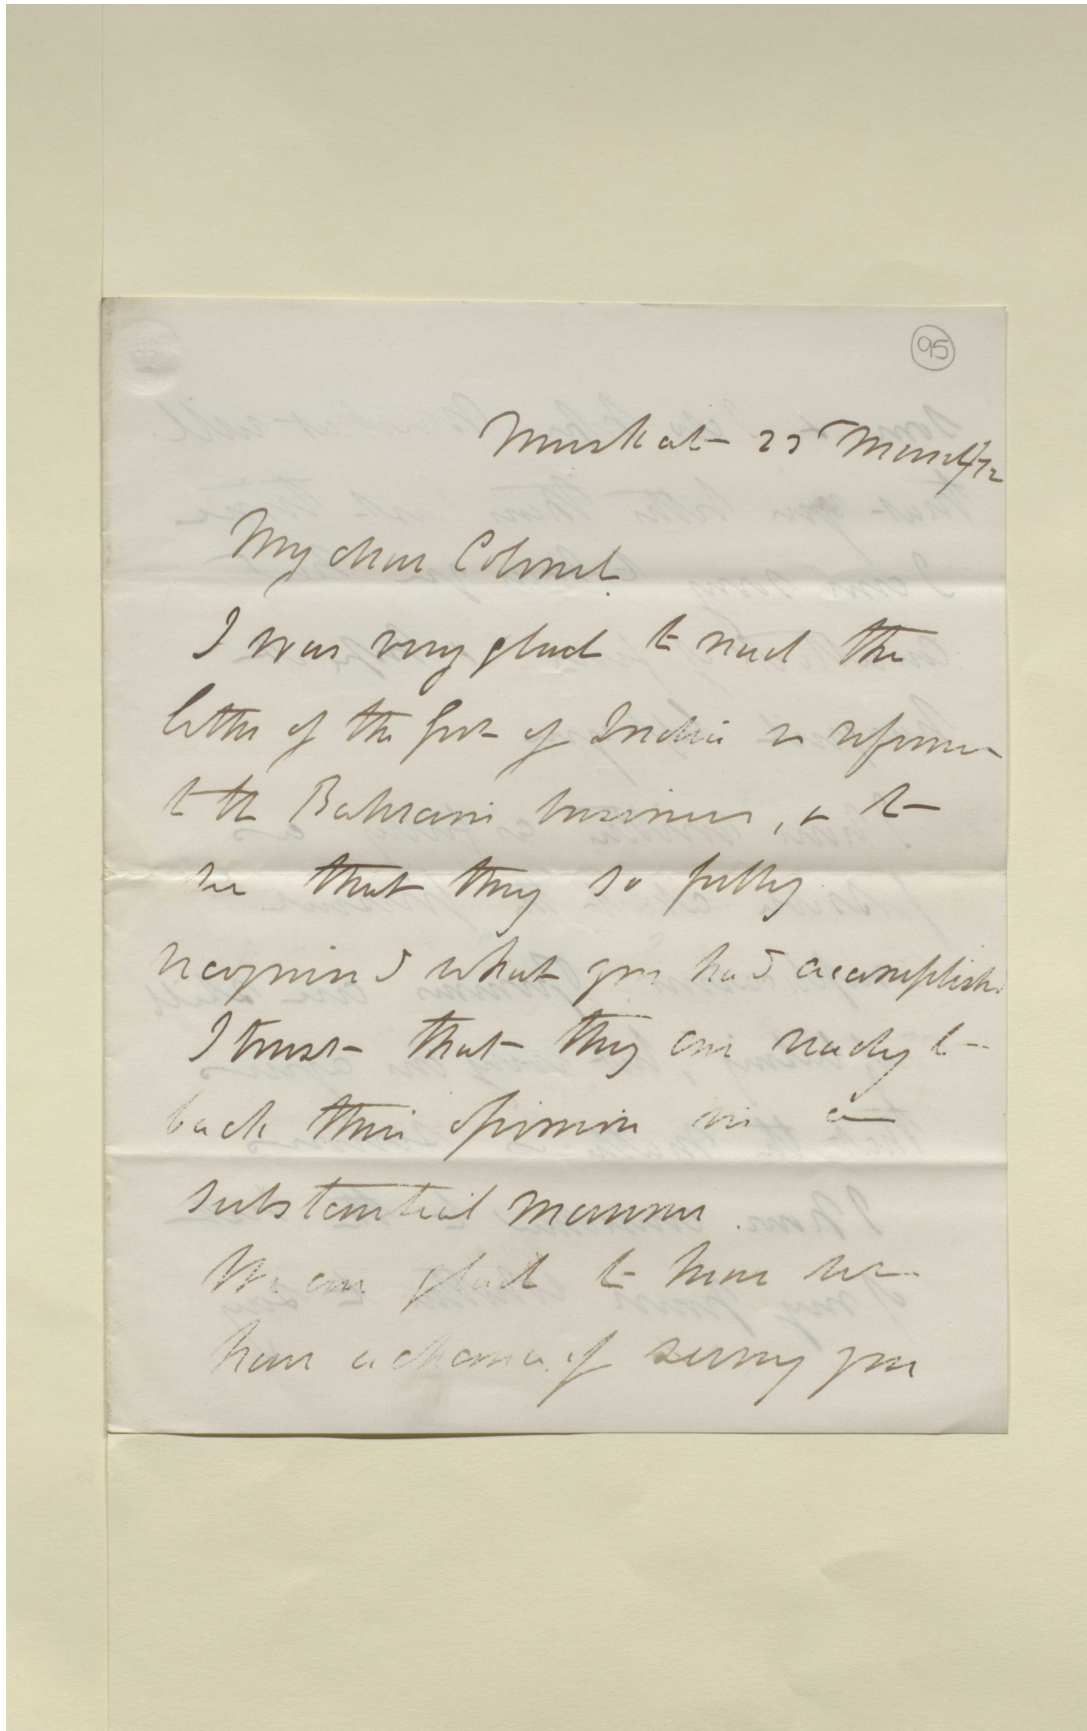 95
Muskat 25 March/72
My dear Colonel
I was very glad to read the
letter of the Govt of India in reference
to the Bahrain business, & to
see that they so fully
recognised what you had accomplished
I trust that they are ready to
back their opinion in a
substantial manner.
We are glad to hear we
have a chance of seeing you